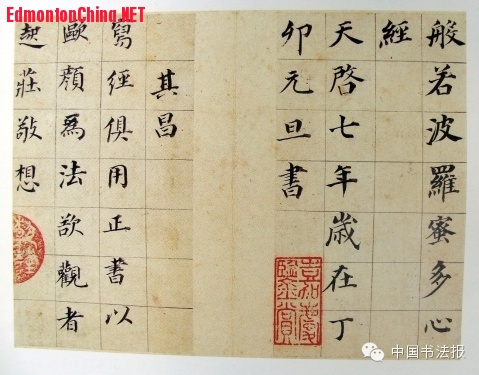 EdmontonChina.NET
般若波羅蜜多心
經
天啓七年歲在丁
卯元旦書
其昌
寫經俱用正書以
歐顏爲法欲觀者
起莊敬想
中国书法报